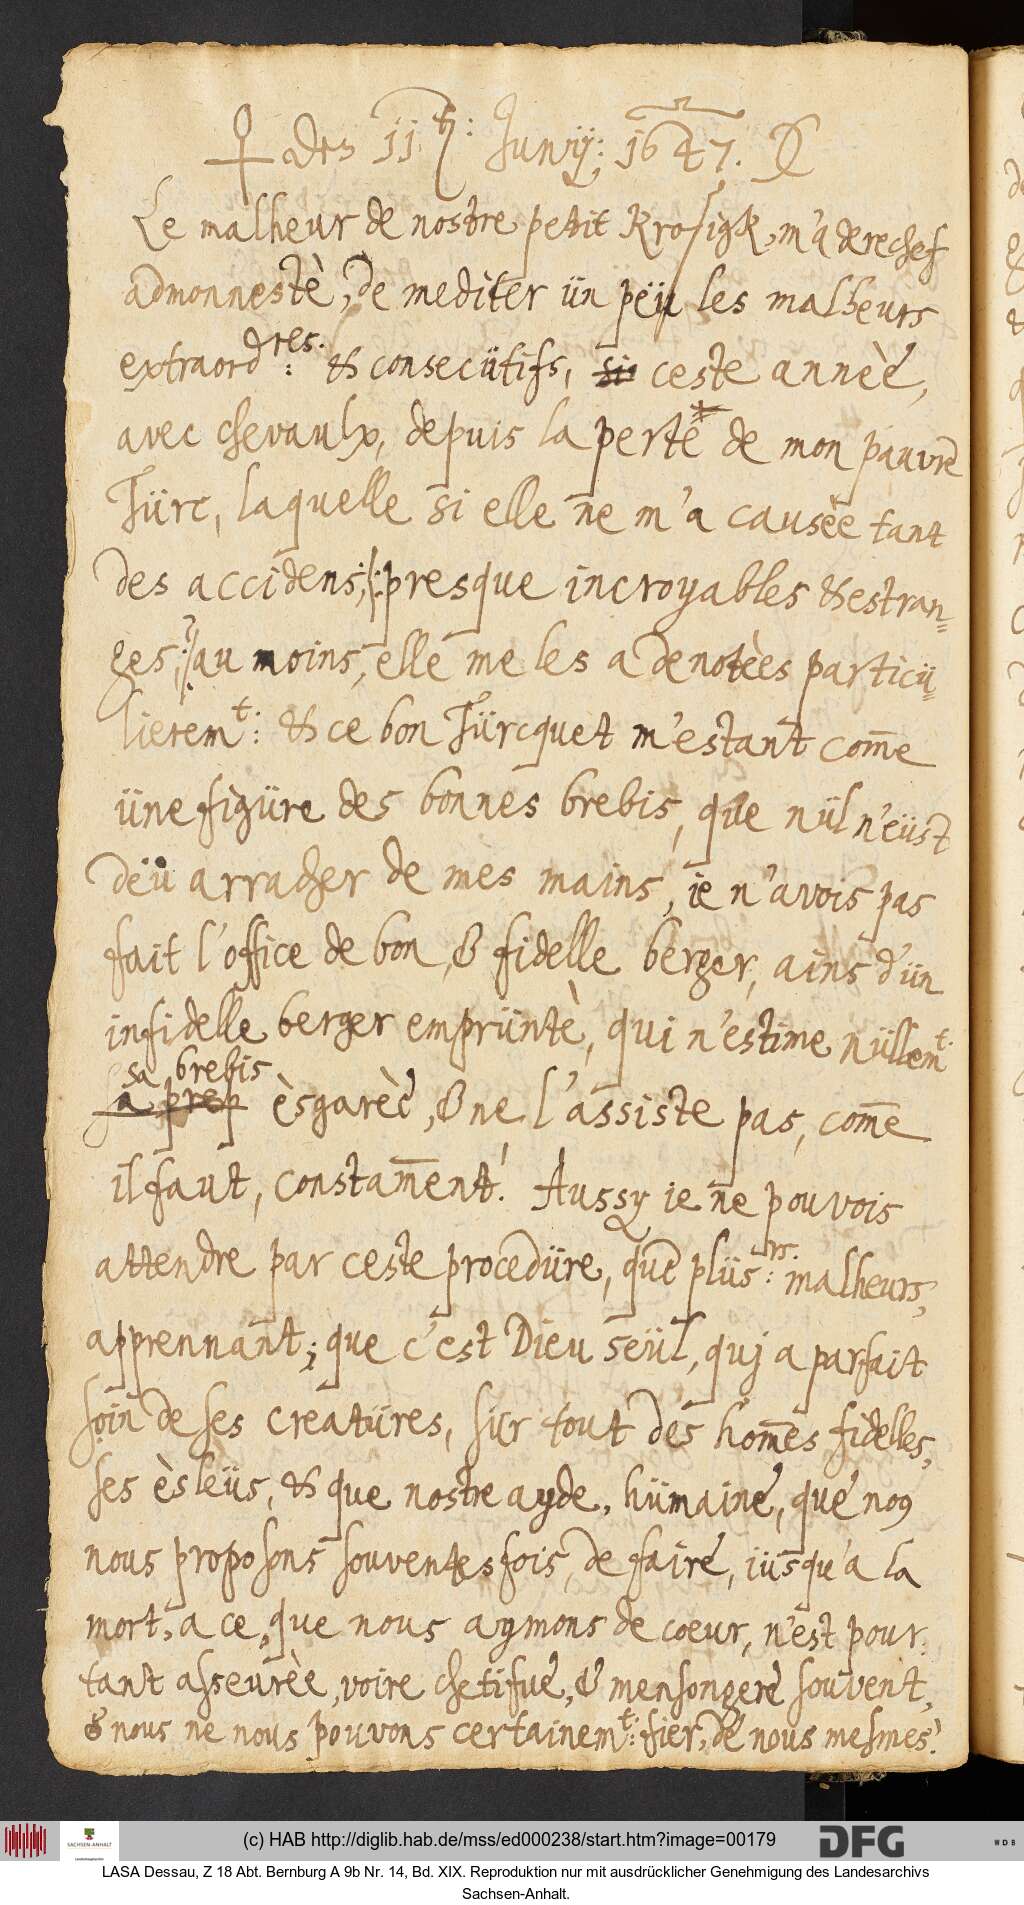 ♀ des 11. h: Junij: 1647. D
Le malheur de nostre petit Krosigk, m'a derechef
admonnestè, de mediter ün peü les malheurs
extraord:res. & consecütifs, si ceste annèe,
avec chevaulx, depuis la perte* de mon pauvre
Türc, laquelle si elle ne m'a causèe tant
des accidens; /:presque incroyables & estran=
ges;:/ au moins, elle me les a denotèes particü=
lierem:t & ce bon Türcquet m'estant com̄e
üne figüre des bonnes brebis, que nül n'eüst
deü arracher de mes mains, ie n'avois pas
fait l'office de bon, & fidelle berger, ains d'ün
infidelle berger emprüntè, qui n'estime nüllem:t
sa brebis
ègarèe, & ne l'assiste pas, com̄e
il faut, constam̄ent! Aussy ie ne pouvois
attendre par ceste procedüre, que plüs:rs. malheurs,
apprennant; que c'est Dieu seül, quj a parfait
soin de ses creatüres, sur tout des hom̄es fidelles,
ses èsleüs, & que nostre ayde, hümaine, que no9
nous proposons souventesfois, de faire, iüsqu'a la
mort, a ce, que nous aymons de coeur, n'est pour
tant asseurèe, voire chetifve, & mensongere souvent,
& nous ne nous pouvons certainem:t fier, de nous mesmes!
(c) HAB http://diglib.hab.de/mss/ed000238/start.htm?image=00179
SACHSEN-ANHALT
DFG
WDB
LASA Dessau, Z 18 Abt. Bernburg A 9b Nr. 14, Bd. XIX. Reproduktion nur mit ausdrücklicher Genehmigung des Landesarchivs
Sachsen-Anhalt.